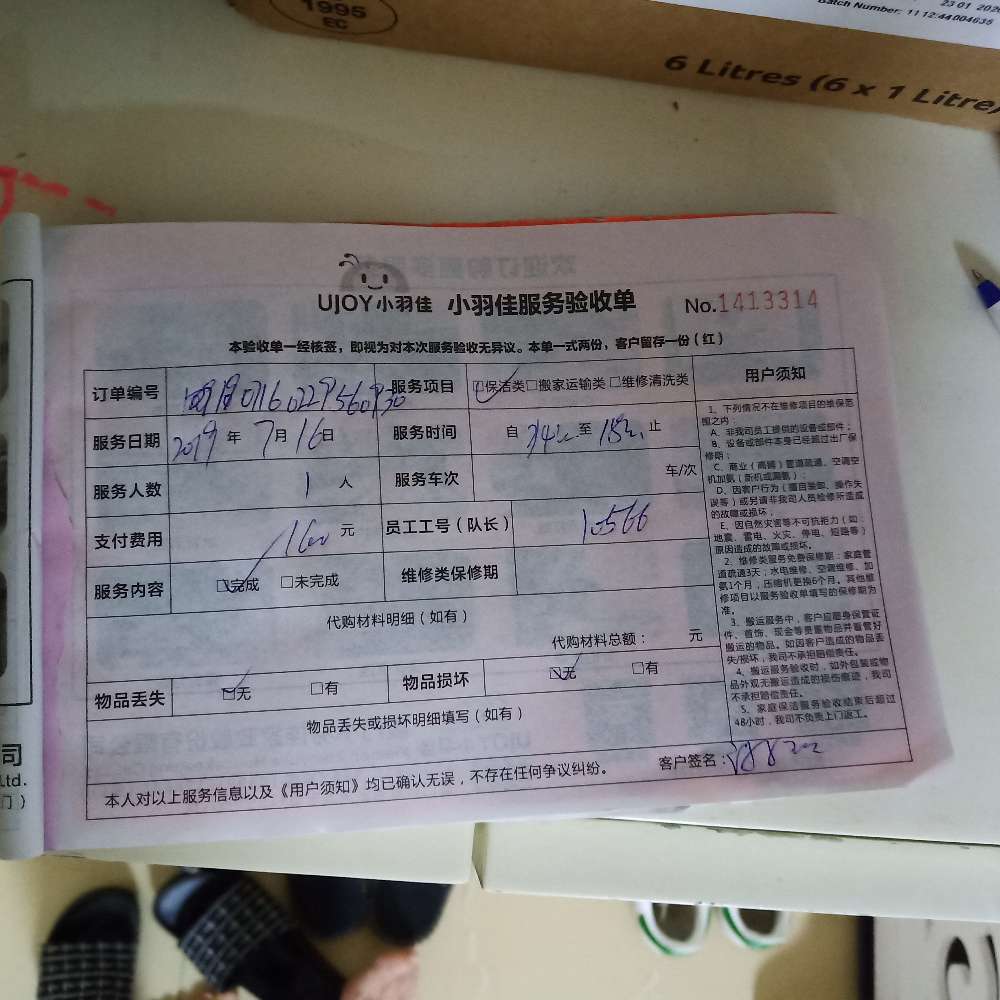 1995
EC
23 01 202
Batch Number: 11 12:44 004635
6 Litres (6 x 1 Litre
UJOY小羽佳 小羽佳服务验收单 No.1413314
本验收单一经核签，即视为对本次服务验收无异议。本单一式两份，客户留存一份（红）
订单编号 服务项目 保洁类 □搬家运输类 □维修清洗类
服务日期 2019年7月16日 服务时间 自 至 止
服务人数 1人 服务车次 车/次
支付费用 元 员工工号（队长） 10566
服务内容 完成 □未完成 维修类保修期
代购材料明细（如有）
代购材料总额： 元
物品丢失 无 □有 物品损坏 无 □有
物品丢失或损坏明细填写（如有）
本人对以上服务信息以及《用户须知》均已确认无误，不存在任何争议纠纷。 客户签名：
用户须知
1、下列情况不在维修项目的维保范
围之内：
A、非我司员工提供的设备或部件；
B、设备或部件本身已经超过出厂保
修期；
C、商业（商铺）管道疏通、空调空
机加氨（新机或漏氨）
D、因客户行为（擅自装卸、操作失
误等）或另请非我司人员检修所造成
的故障或损坏；
E、因自然灾害等不可抗拒力（如：
地震、雷电、火灾、停电、短路等）
原因造成的故障或损坏。
2、维修类服务免费保修期：家庭管
道疏通3天；水电维修、空调维修、加
氨1个月，压缩机更换6个月。其他维
修项目以服务验收单填写的保修期为
准。
3、搬运服务中，客户应随身保管证
件、首饰、现金等贵重物品并看管好
搬运的物品。如因客户造成的物品丢
失/损坏，我司不承担赔偿责任。
4、搬运服务验收时，如外包装或物
品外观无搬运造成的损伤痕迹，我司
不承担赔偿责任。
5、家庭保洁服务验收结束后超过
48小时，我司不负责上门返工。
司
Ltd.
门）